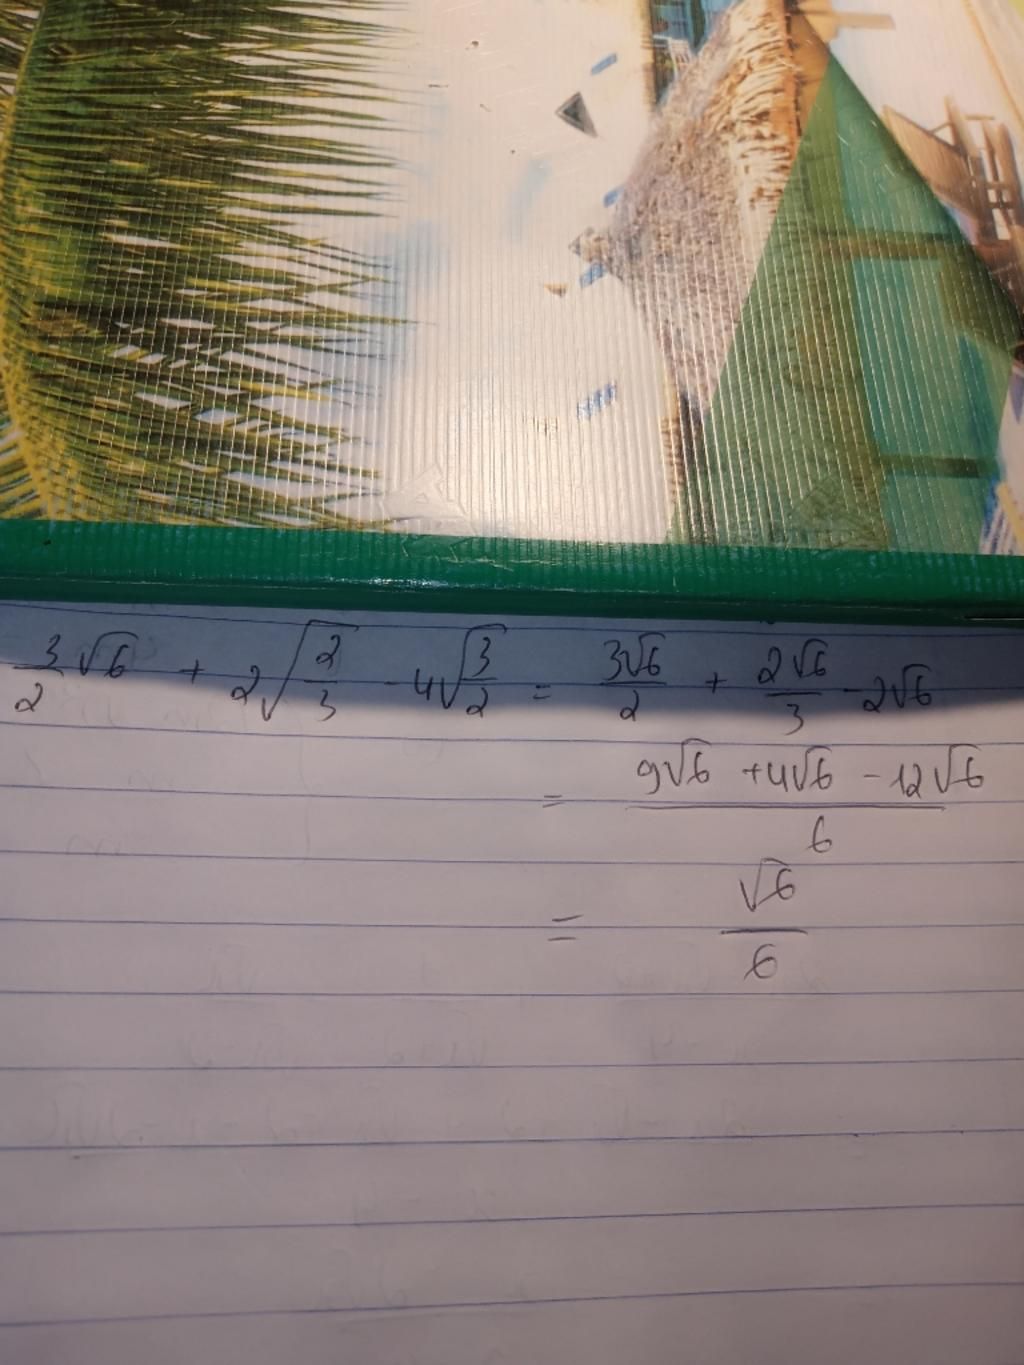 3/2 √6 + 2√(2/3) - 4√(3/2) = 3√6/2 + 2√6/3 - 2√6
= (9√6 + 4√6 - 12√6)/6
= √6/6